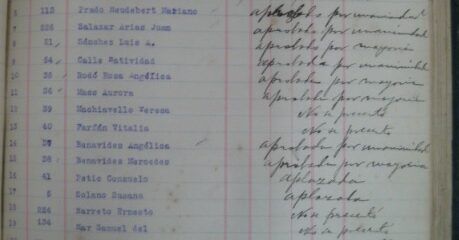 5 113 Prado Neudebert Mariano aplazado por unanimidad
7 226 Salazar Arias Juan aprobado por unanimidad
8 21 Sánchez Luis A. aprobado por mayoría
9 54 Calle Natividad aprobada por unanimidad
10 35 Rodó Rosa Angélica aprobada por mayoría
11 36 Mass Aurora aprobada por mayoría
12 39 Machiavello Teresa No se presentó
13 40 Farfán Vitalia No se presentó
14 37 Benavides Angélica aprobada por unanimidad
15 38 Benavides Mercedes aprobada por mayoría
16 41 Patio Consuelo aplazada
17 5 Solano Susana aplazada
18 224 Barreto Ernesto No se presentó
19 134 Mar Samuel del No se presentó